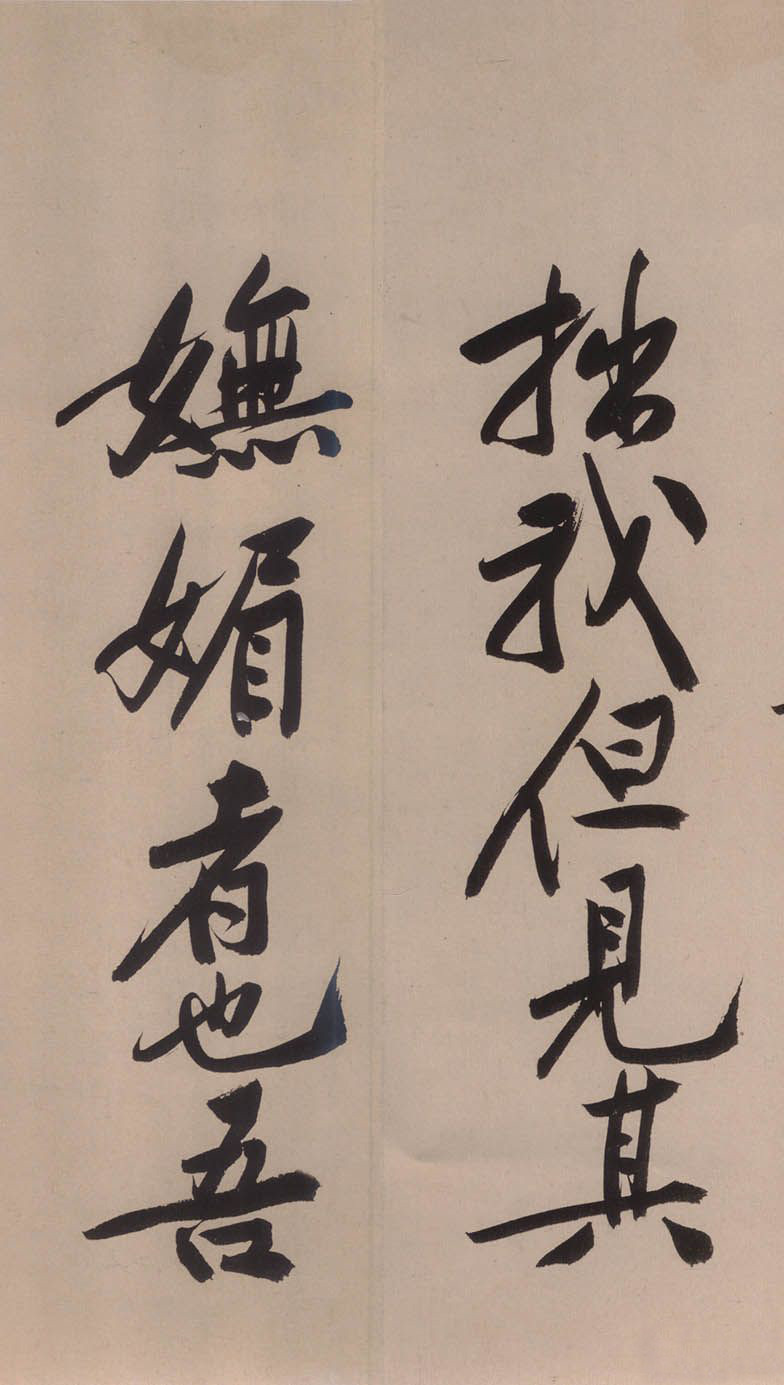 拙我但見其
嫵媚者也吾